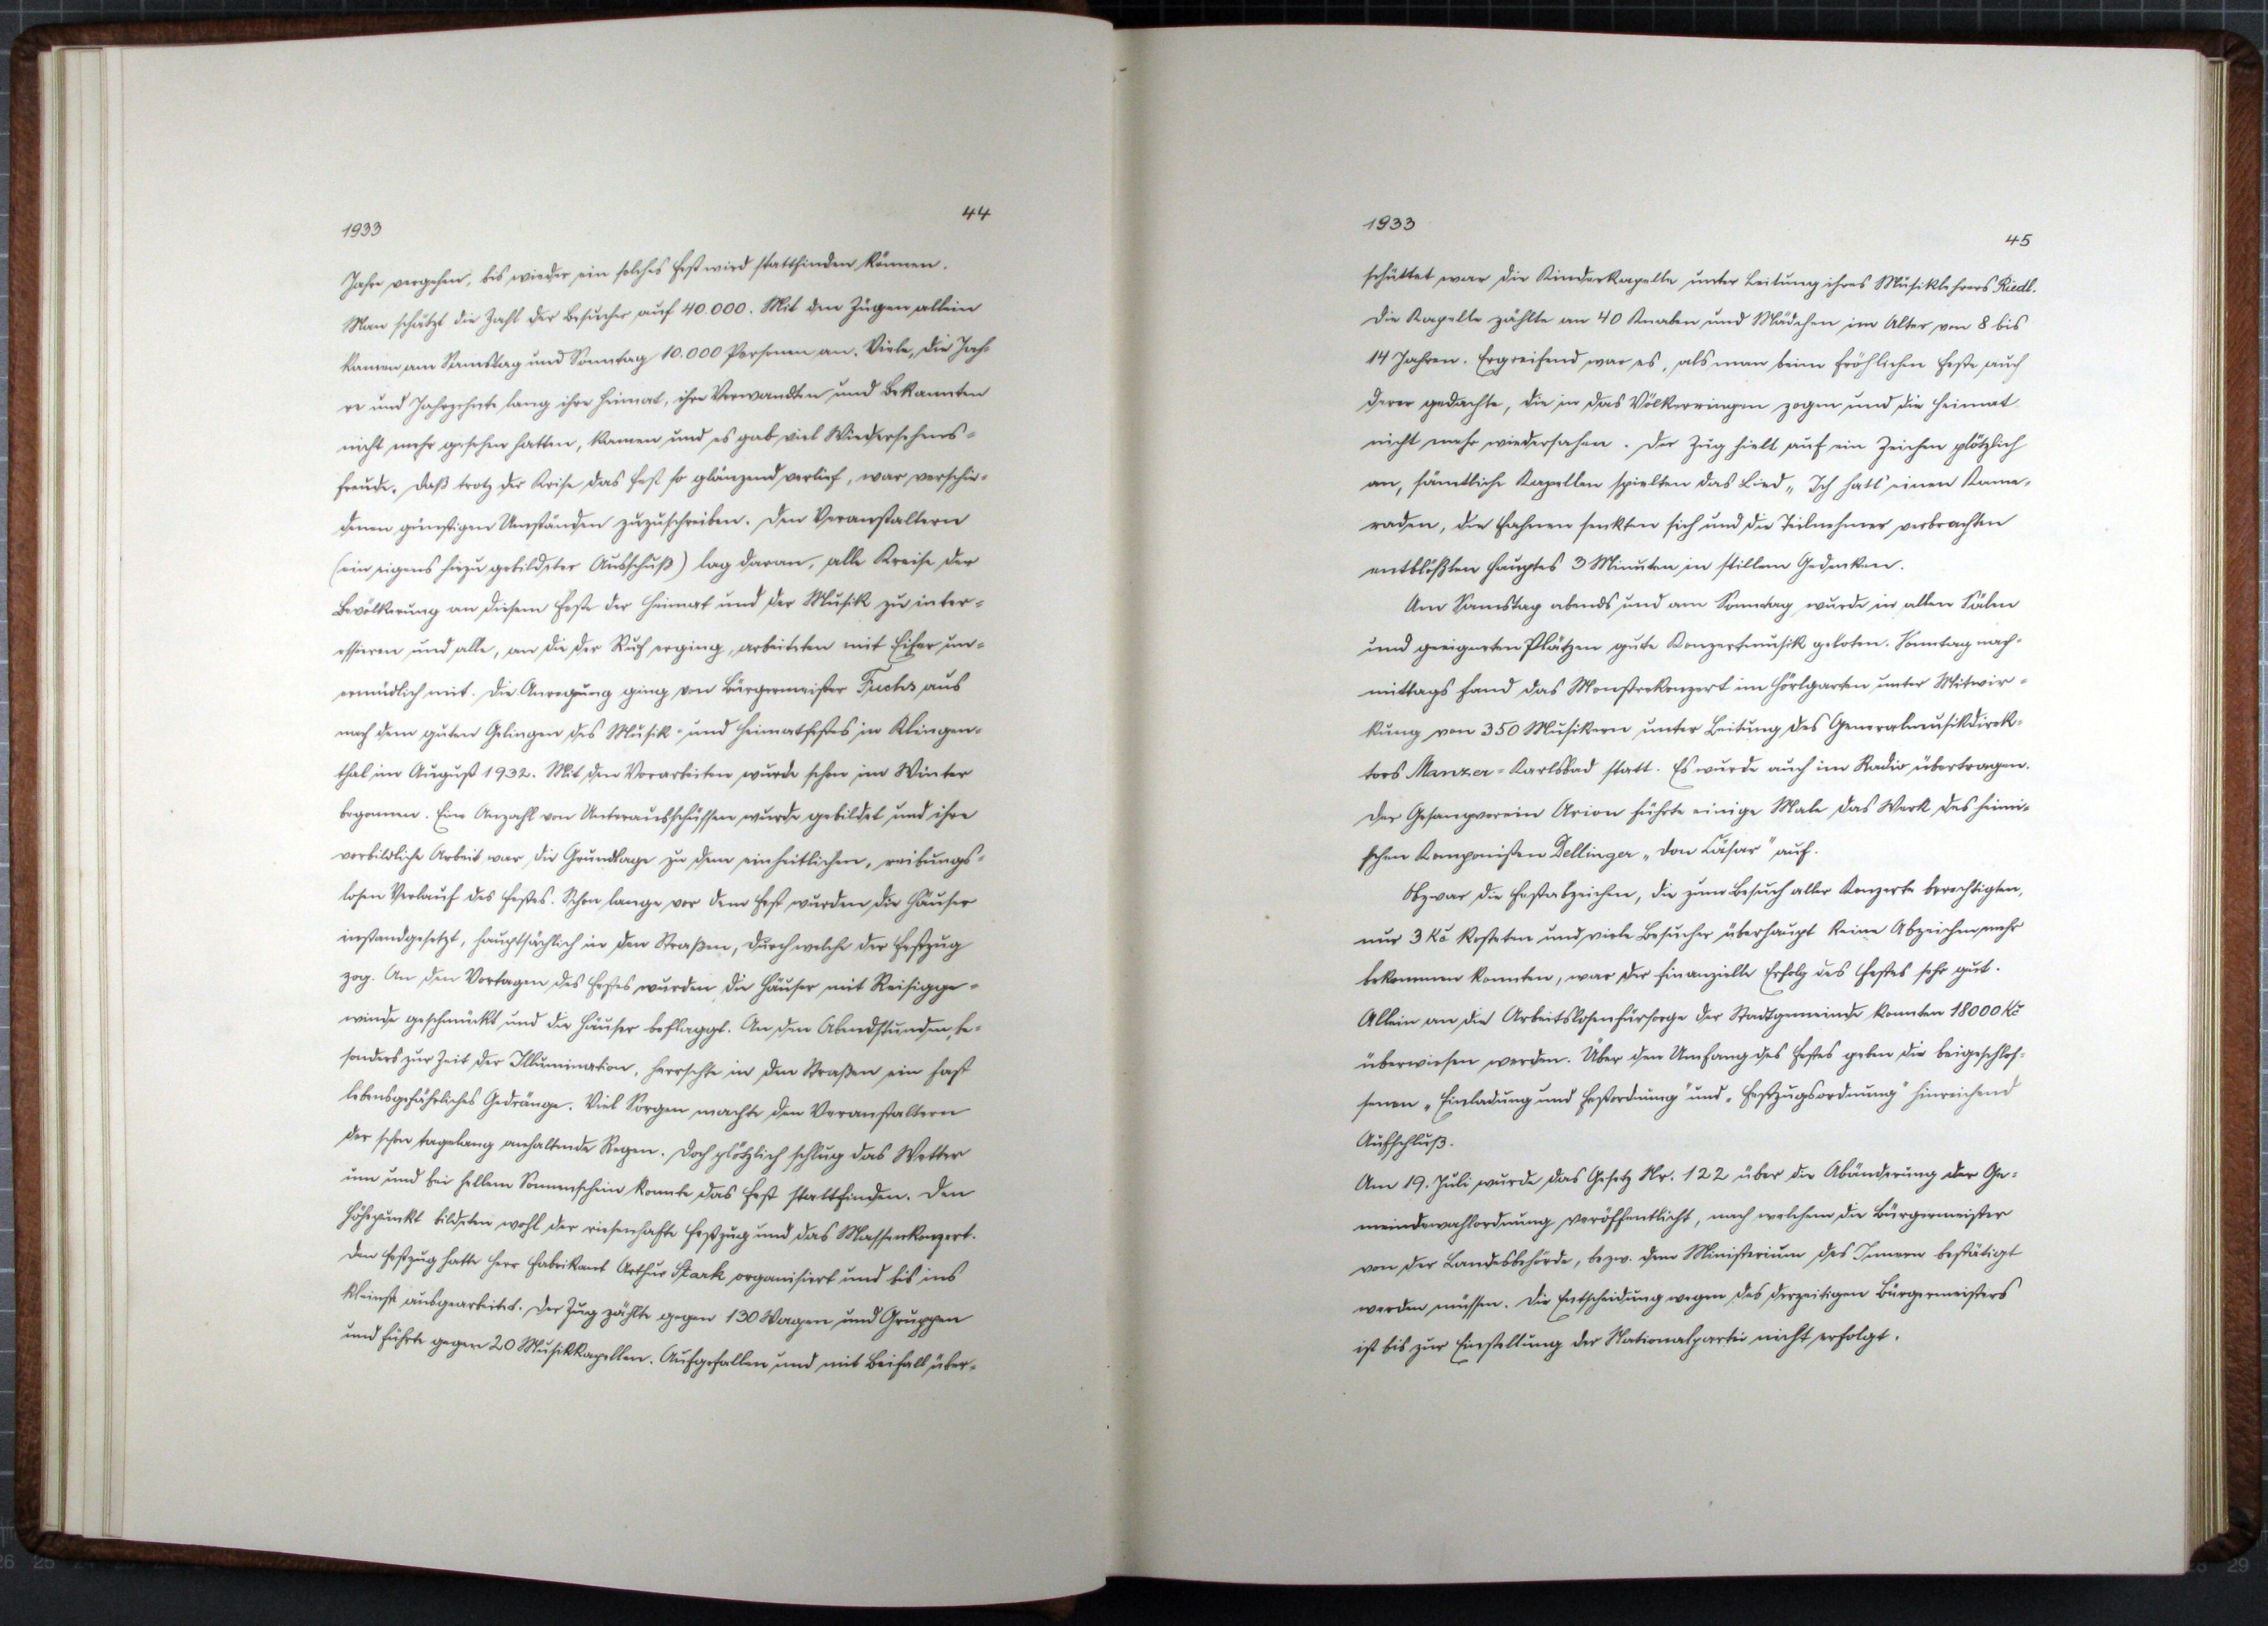 1933
44
Jahre vergehen, bis wieder ein solches Fest wird stattfinden können.
Man schätzt die Zahl der Besucher auf 40.000. Mit den Zügen allein
kamen am Samstag und Sonntag 10.000 Personen an. Viele, die Jah-
re und Jahrzehnte lang ihre Heimat, ihre Verwandten und Bekannten
nicht mehr gesehen hatten, kamen und es gab viel Wiedersehens-
freude. Daß trotz der Krise das Fest so glänzend verlief, war verschie-
denen günstigen Umständen zuzuschreiben. Den Veranstaltern
(ein eigens hiezu gebildeter Ausschuß) lag daran, alle Kreise der
Bevölkerung an diesem Feste der Heimat und der Musik zu inter-
essieren und alle, an die der Ruf erging, arbeiteten mit Eifer un-
ermüdlich mit. Die Anregung ging von Bürgermeister Fuchs aus
nach dem guten Gelingen des Musik- und Heimatfestes in Klingen-
thal im August 1932. Mit den Vorarbeiten wurde schon im Winter
begonnen. Eine Anzahl von Unterausschüssen wurde gebildet und ihre
vorbildliche Arbeit war die Grundlage zu dem einheitlichen, reibungs-
losen Verlauf des Festes. Schon lange vor dem Fest wurden die Häuser
instandgesetzt, hauptsächlich in den Straßen, durch welche der Festzug
zog. An den Vortagen des Festes wurden die Häuser mit Reisigge-
winde geschmückt und die Häuser beflaggt. An den Abendstunden, be-
sonders zur Zeit der Illumination, herrschte in den Straßen ein fast
lebensgefährliches Gedränge. Viel Sorgen machte den Veranstaltern
der schon tagelang anhaltende Regen. Doch plötzlich schlug das Wetter
um und bei hellem Sonnenschein konnte das Fest stattfinden. Den
Höhepunkt bildeten wohl der riesenhafte Festzug und das Massenkonzert.
Den Festzug hatte Herr Fabrikant Arthur Stark organisiert und bis ins
Kleinste ausgearbeitet. Der Zug zählte gegen 130 Wagen und Gruppen
und führte gegen 20 Musikkapellen. Aufgefallen und mit Beifall über-
1933
45
schüttet war die Kinderkapelle unter Leitung ihres Musiklehrers Riedl.
Die Kapelle zählte an 40 Knaben und Mädchen im Alter von 8 bis
14 Jahren. Ergreifend war es, als man beim fröhlichen Feste auch
derer gedachte, die in das Völkerringen zogen und die Heimat
nicht mehr wiedersahen. Der Zug hielt auf ein Zeichen plötzlich
an, sämtliche Kapellen spielten das Lied „Ich hatt' einen Kame-
raden, die Fahnen senkten sich und die Teilnehmer verbrachten
entblößten Hauptes 3 Minuten in stillem Gedenken.
Am Samstag abends und am Sonntag wurde in allen Sälen
und geeigneten Plätzen gute Konzertmusik geboten. Sonntag nach-
mittags fand das Monstrekonzert im Hörlgarten unter Mitwir-
kung von 350 Musikern unter Leitung des Generalmusikdirek-
tors Manzer-Karlsbad statt. Es wurde auch im Radio übertragen.
Der Gesangverein Arion führte einige Male das Werk des heimi-
schen Komponisten Dellinger „Don Cäsar" auf.
Obzwar die Festabzeichen, die zum Besuch aller Konzerte berechtigten,
nur 3 Kč kosteten und viele Besucher überhaupt keine Abzeichen mehr
bekommen konnten, war der finanzielle Erfolg des Festes sehr gut.
Allein an die Arbeitslosenfürsorge der Stadtgemeinde konnten 18000 Kč
überwiesen werden. Über den Umfang des Festes geben die beigeschlos-
senen „Einladung und Festordnung" und „Festzugsordnung" hinreichend
Aufschluß.
Am 19. Juli wurde das Gesetz Nr. 122 über die Abänderung der Ge-
meindewahlordnung veröffentlicht, nach welchem die Bürgermeister
von der Landesbehörde, bezw. dem Ministerium des Innern bestätigt
werden müssen. Die Entscheidung wegen des derzeitigen Bürgermeisters
ist bis zur Einstellung der Nationalpartei nicht erfolgt.